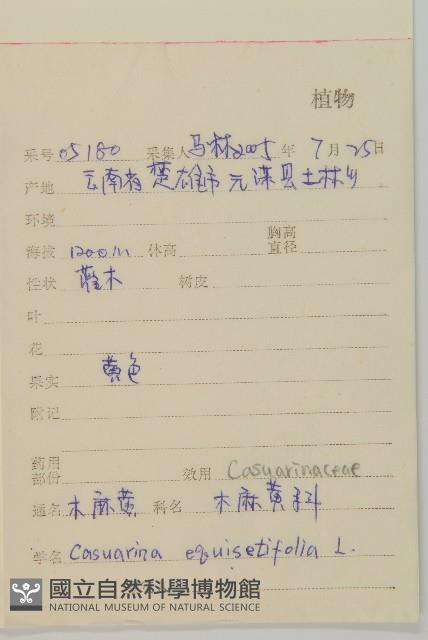 植物
采号 05180 采集人 马林 2005 年 7 月 25 日
产地 云南省 楚雄市 元谋县 土林乡
环境
海拔 1200m 体高 胸高直径
性状 灌木 树皮
叶
花
果实 黄色
附记
药用部份 效用 Casuarinaceae
通名 木麻黄 科名 木麻黄科
学名 Casuarina equisetifolia L.
國立自然科學博物館
NATIONAL MUSEUM OF NATURAL SCIENCE